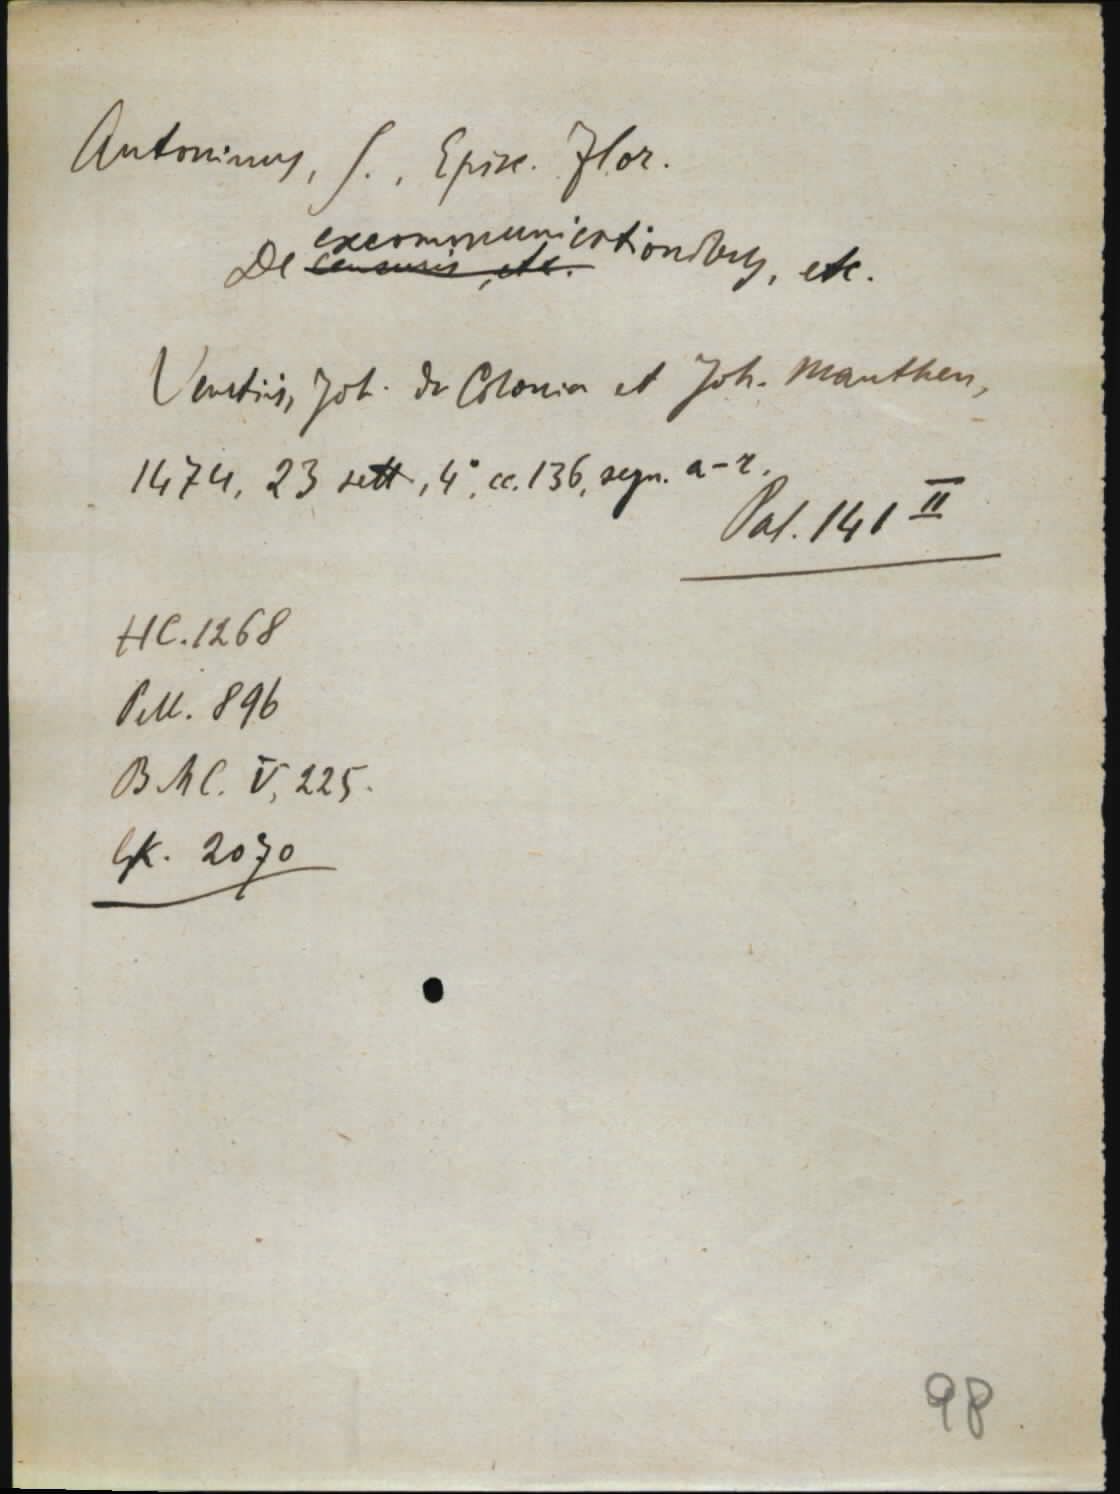 Antoninus, S., Episc. Flor.
De excommunicationibus, etc.
censuris, etc.
Venetiis, Joh. de Colonia et Joh. Manthen,
1474, 23 sett., 4°, cc. 136, segn. a-r.
Pal. 141 II
HC. 1268
Pell. 896
BMC. V, 225.
Gk. 2070
98